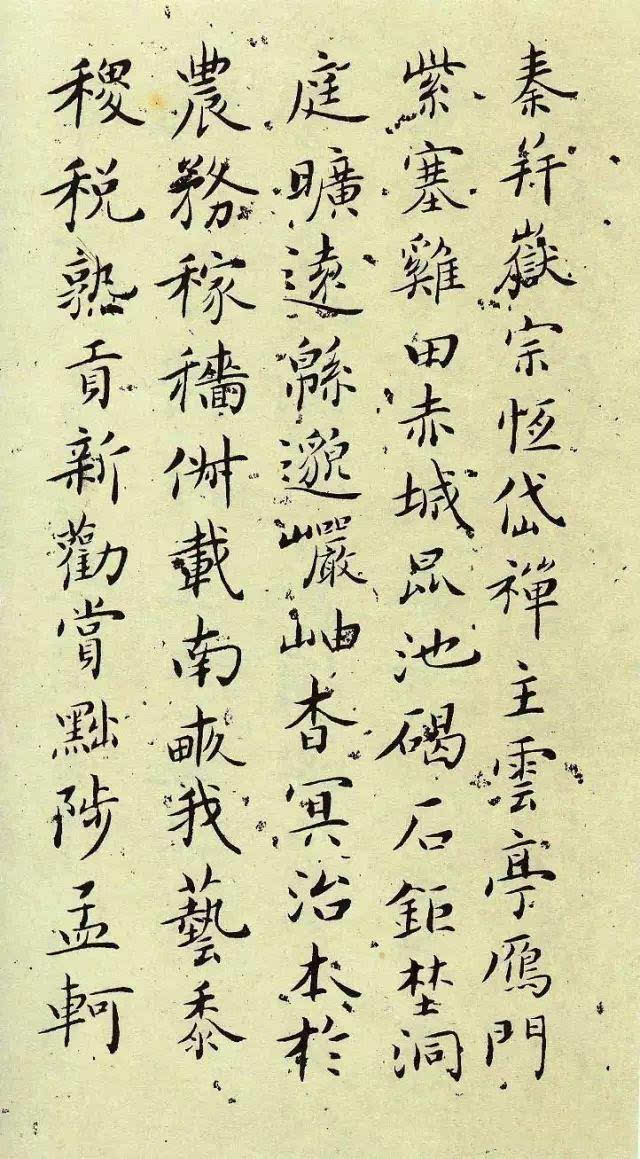 秦并嶽宗恆岱禪主雲亭鴈門
紫塞雞田赤城昆池碣石鉅埜洞
庭曠遠緜邈巖岫杳冥治本於
農務稼穡俶載南畝我藝黍
稷税熟貢新勸賞黜陟孟軻